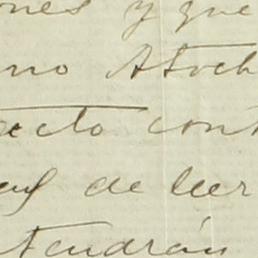 ones y que
no Atoch
ecto cont
de leer
tendrán